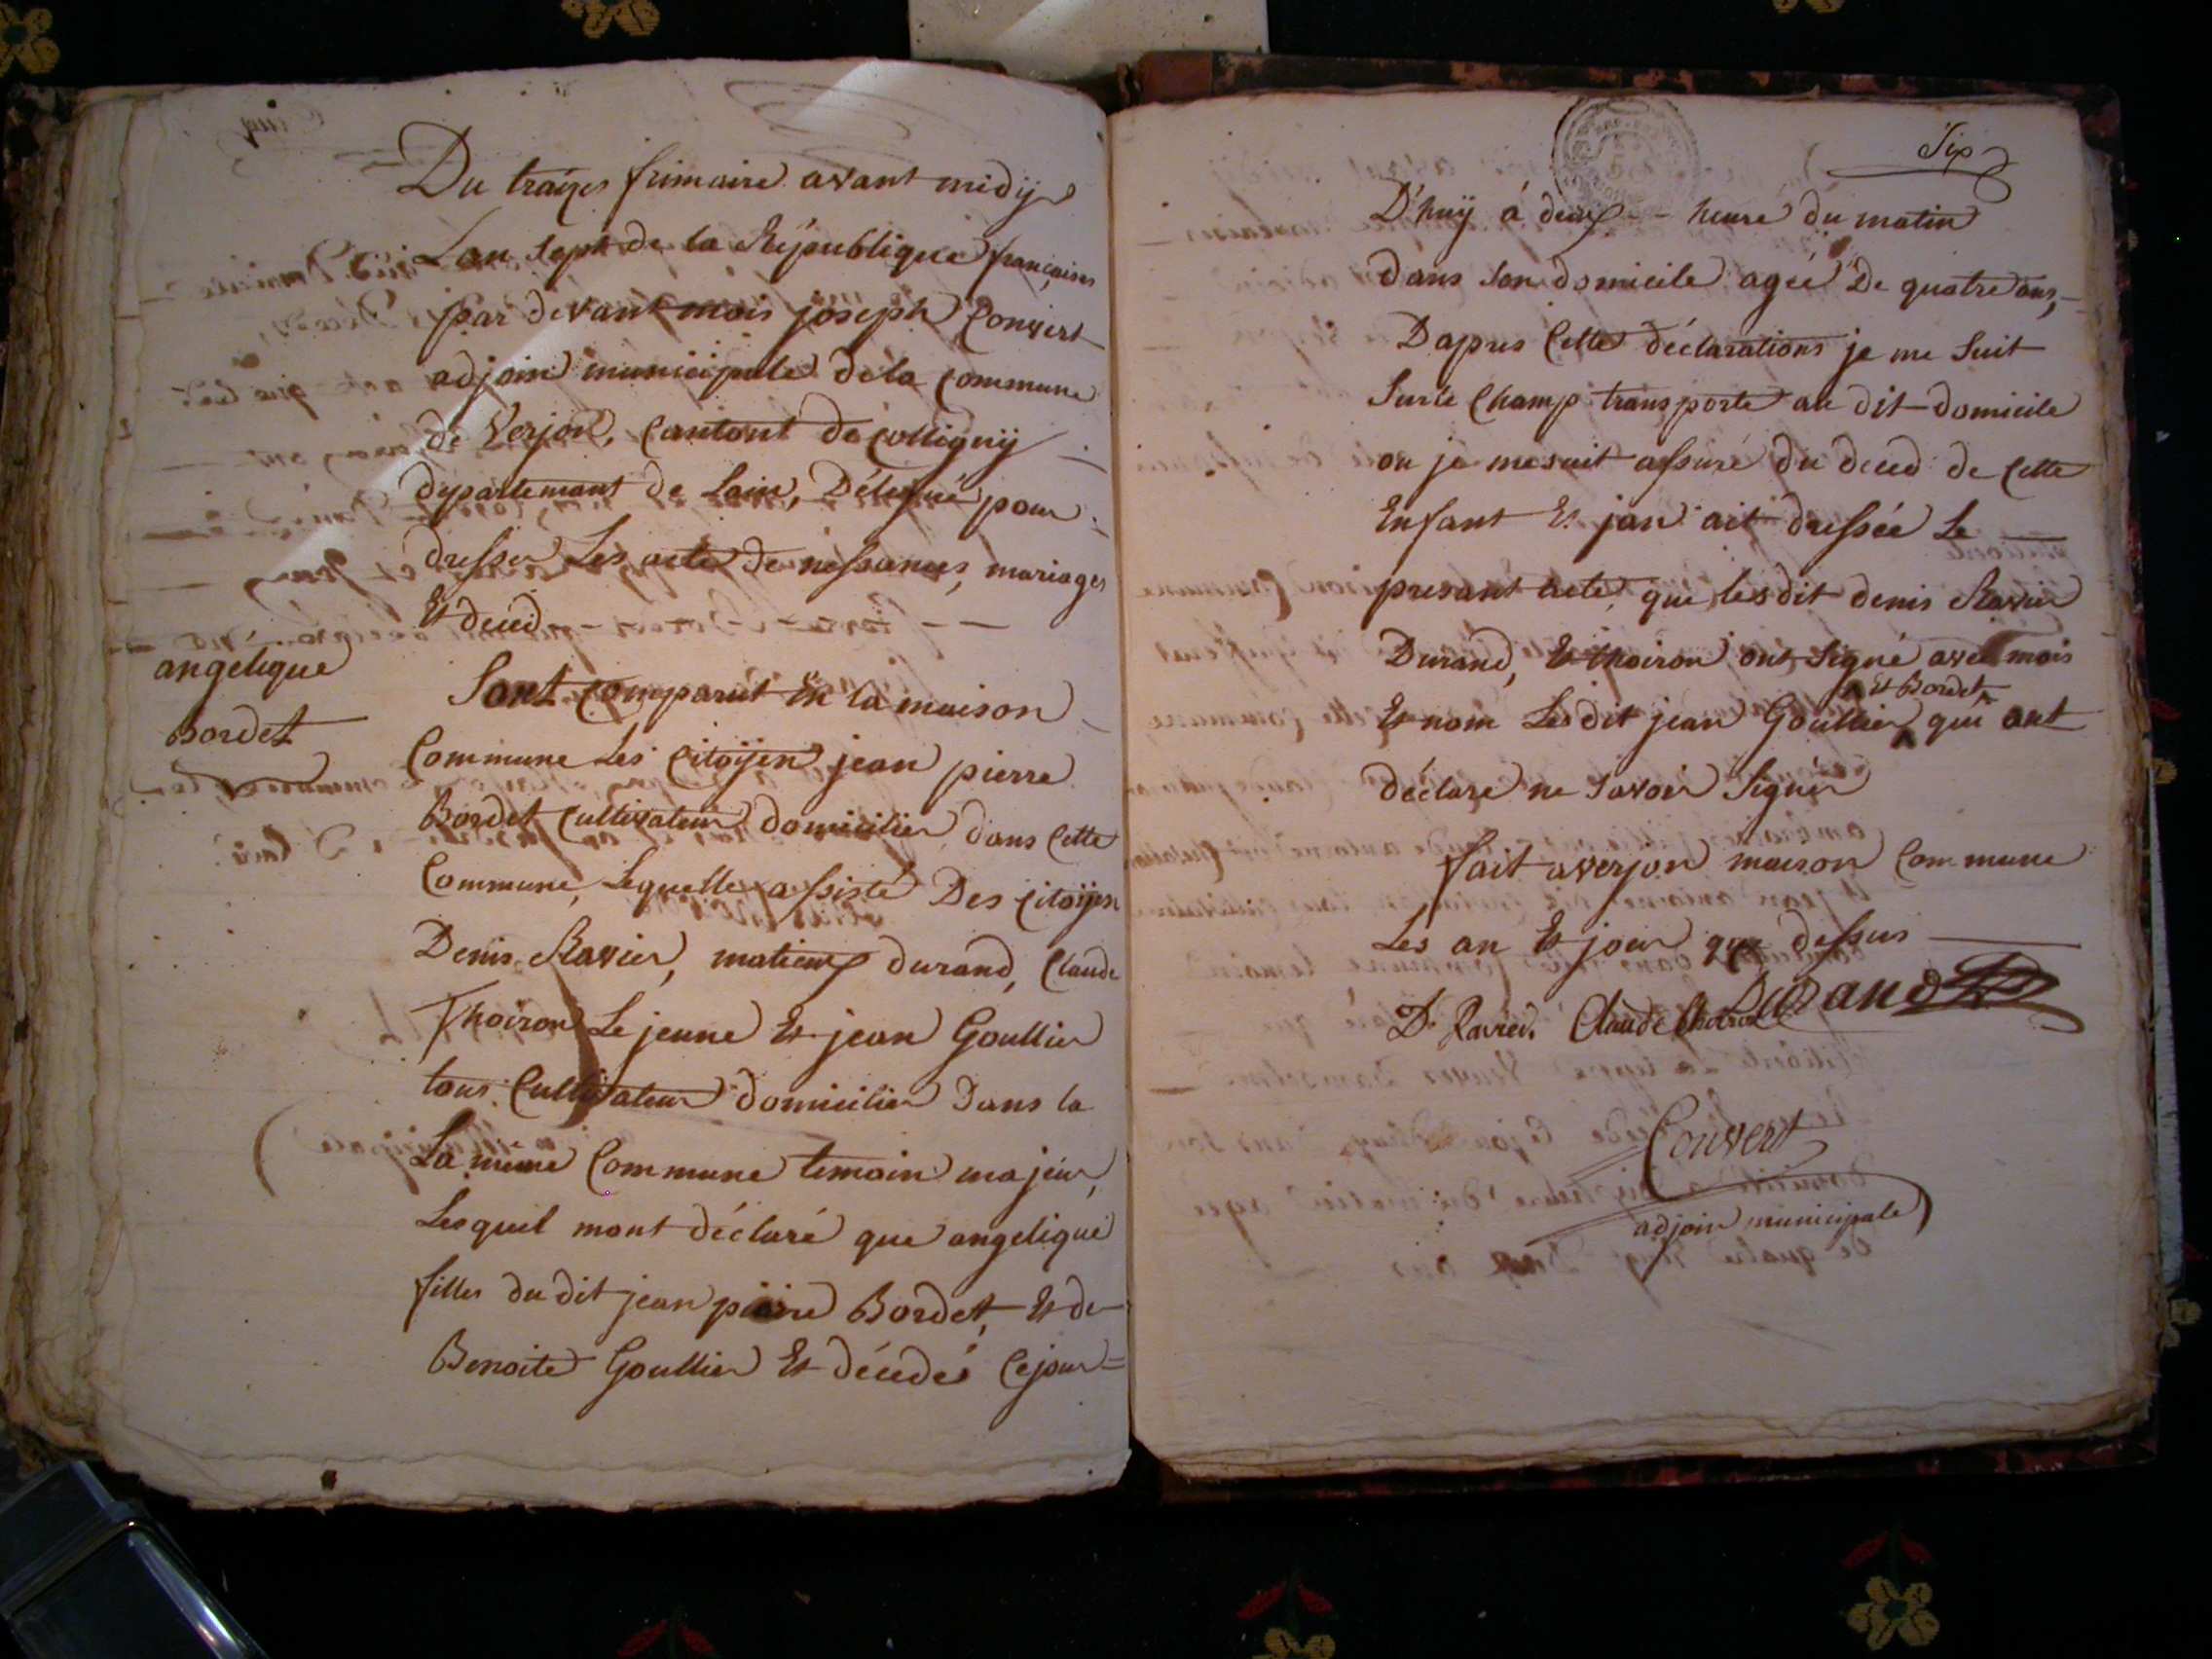 Du traizes frimaire avant midij
Lan Sept de la République françaises
par devant mois joseph Convert
adjoin municipale de la commune
de Verjon, Cantont de Collignij
département de Lain, Délegué pour
dresser Les acte de nessances, mariages
Et deced
angelique
Bordet
Sont Comparut En la maison
Commune Les Citoijen jean pierre
Bordet Cultivateur domicilier dans Cette
Commune, Lequelle assisté Des Citoijen
Denis Ravier, matieux durand, Claude
Thoiron Le jeune Et jean Goullier
tous Cultivateur domicilier Dans la
La meme Commune temoin majeur,
Lesquel mont déclaré que angelique
filles du dit jean pierre Bordet, Et de
Benoite Goullier Et décedés Cejour=
Six
D'huij á deux - heure du matin
dans son domicile agée De quatre ans,
Dapres Cette déclarations je me Suit
Surle Champ transporte au dit domicile
ou je me suit assuré du deced de Cette
Enfant Et jan ait dressée Le
presant acte, que lesdit denis Ravier
Durand, Et thoiron ont Signé avec mois
Et Bordet
Et nom Lesdit jean Goullier qui ont
déclare ne Savoir Signér
fait averjon maison Commune
Les an Et jour que dessus
D. Ravier. Claude thoiron Durand
Convert
adjoin municipale